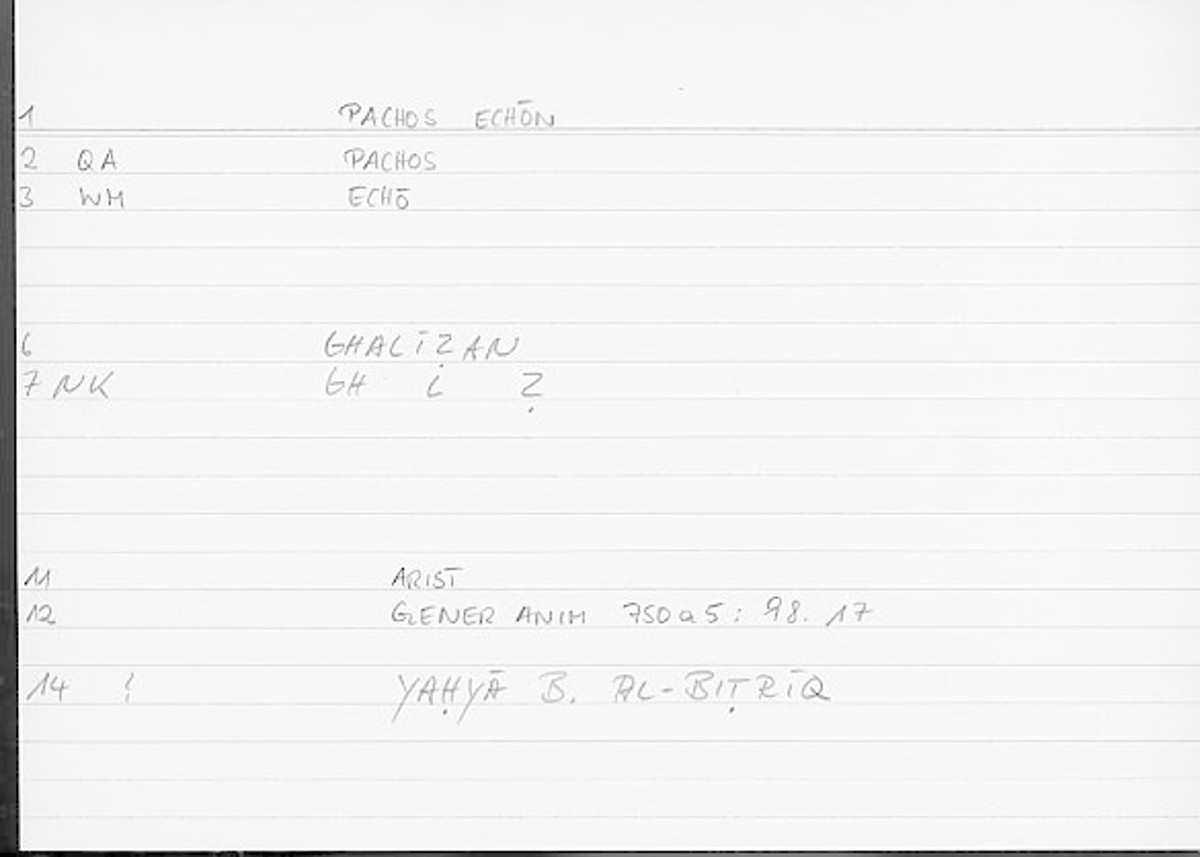 1 PACHOS ECHŌN
2 QA PACHOS
3 WM ECHŌ
6 GHALĪẒAN
7 NK GH L Ẓ
11 ARIST
12 GENER ANIM 750a5: 98. 17
14 YAḤYĀ B. AL-BIṬRĪQ